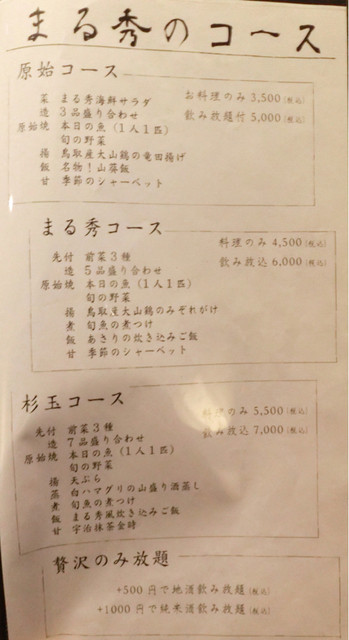 まる秀のコース
原始コース
菜 まる秀海鮮サラダ
造 3品盛り合わせ
原始焼 本日の魚(1人1匹)
旬の野菜
揚 鳥取産大山鶏の竜田揚げ
飯 名物!山葵飯
甘 季節のシャーベット
お料理のみ 3,500(税込)
飲み放題付 5,000(税込)
まる秀コース
先付 前菜3種
造 5品盛り合わせ
原始焼 本日の魚(1人1匹)
旬の野菜
揚 鳥取産大山鶏のみぞれがけ
煮 旬魚の煮つけ
飯 あさりの炊き込みご飯
甘 季節のシャーベット
料理のみ 4,500(税込)
飲み放込 6,000(税込)
杉玉コース
先付 前菜3種
造 7品盛り合わせ
原始焼 本日の魚(1人1匹)
旬の野菜
揚 天ぷら
蒸 白ハマグリの山盛り酒蒸し
煮 旬魚の煮つけ
飯 まる秀風炊き込みご飯
甘 宇治抹茶金時
料理のみ 5,500(税込)
飲み放込 7,000(税込)
贅沢のみ放題
+500円で地酒飲み放題(税込)
+1000円で純米酒飲み放題(税込)